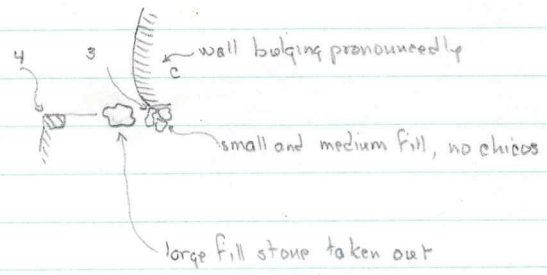 wall bulging pronouncedly
4 3 c
small and medium fill, no chicos
large fill stone taken out